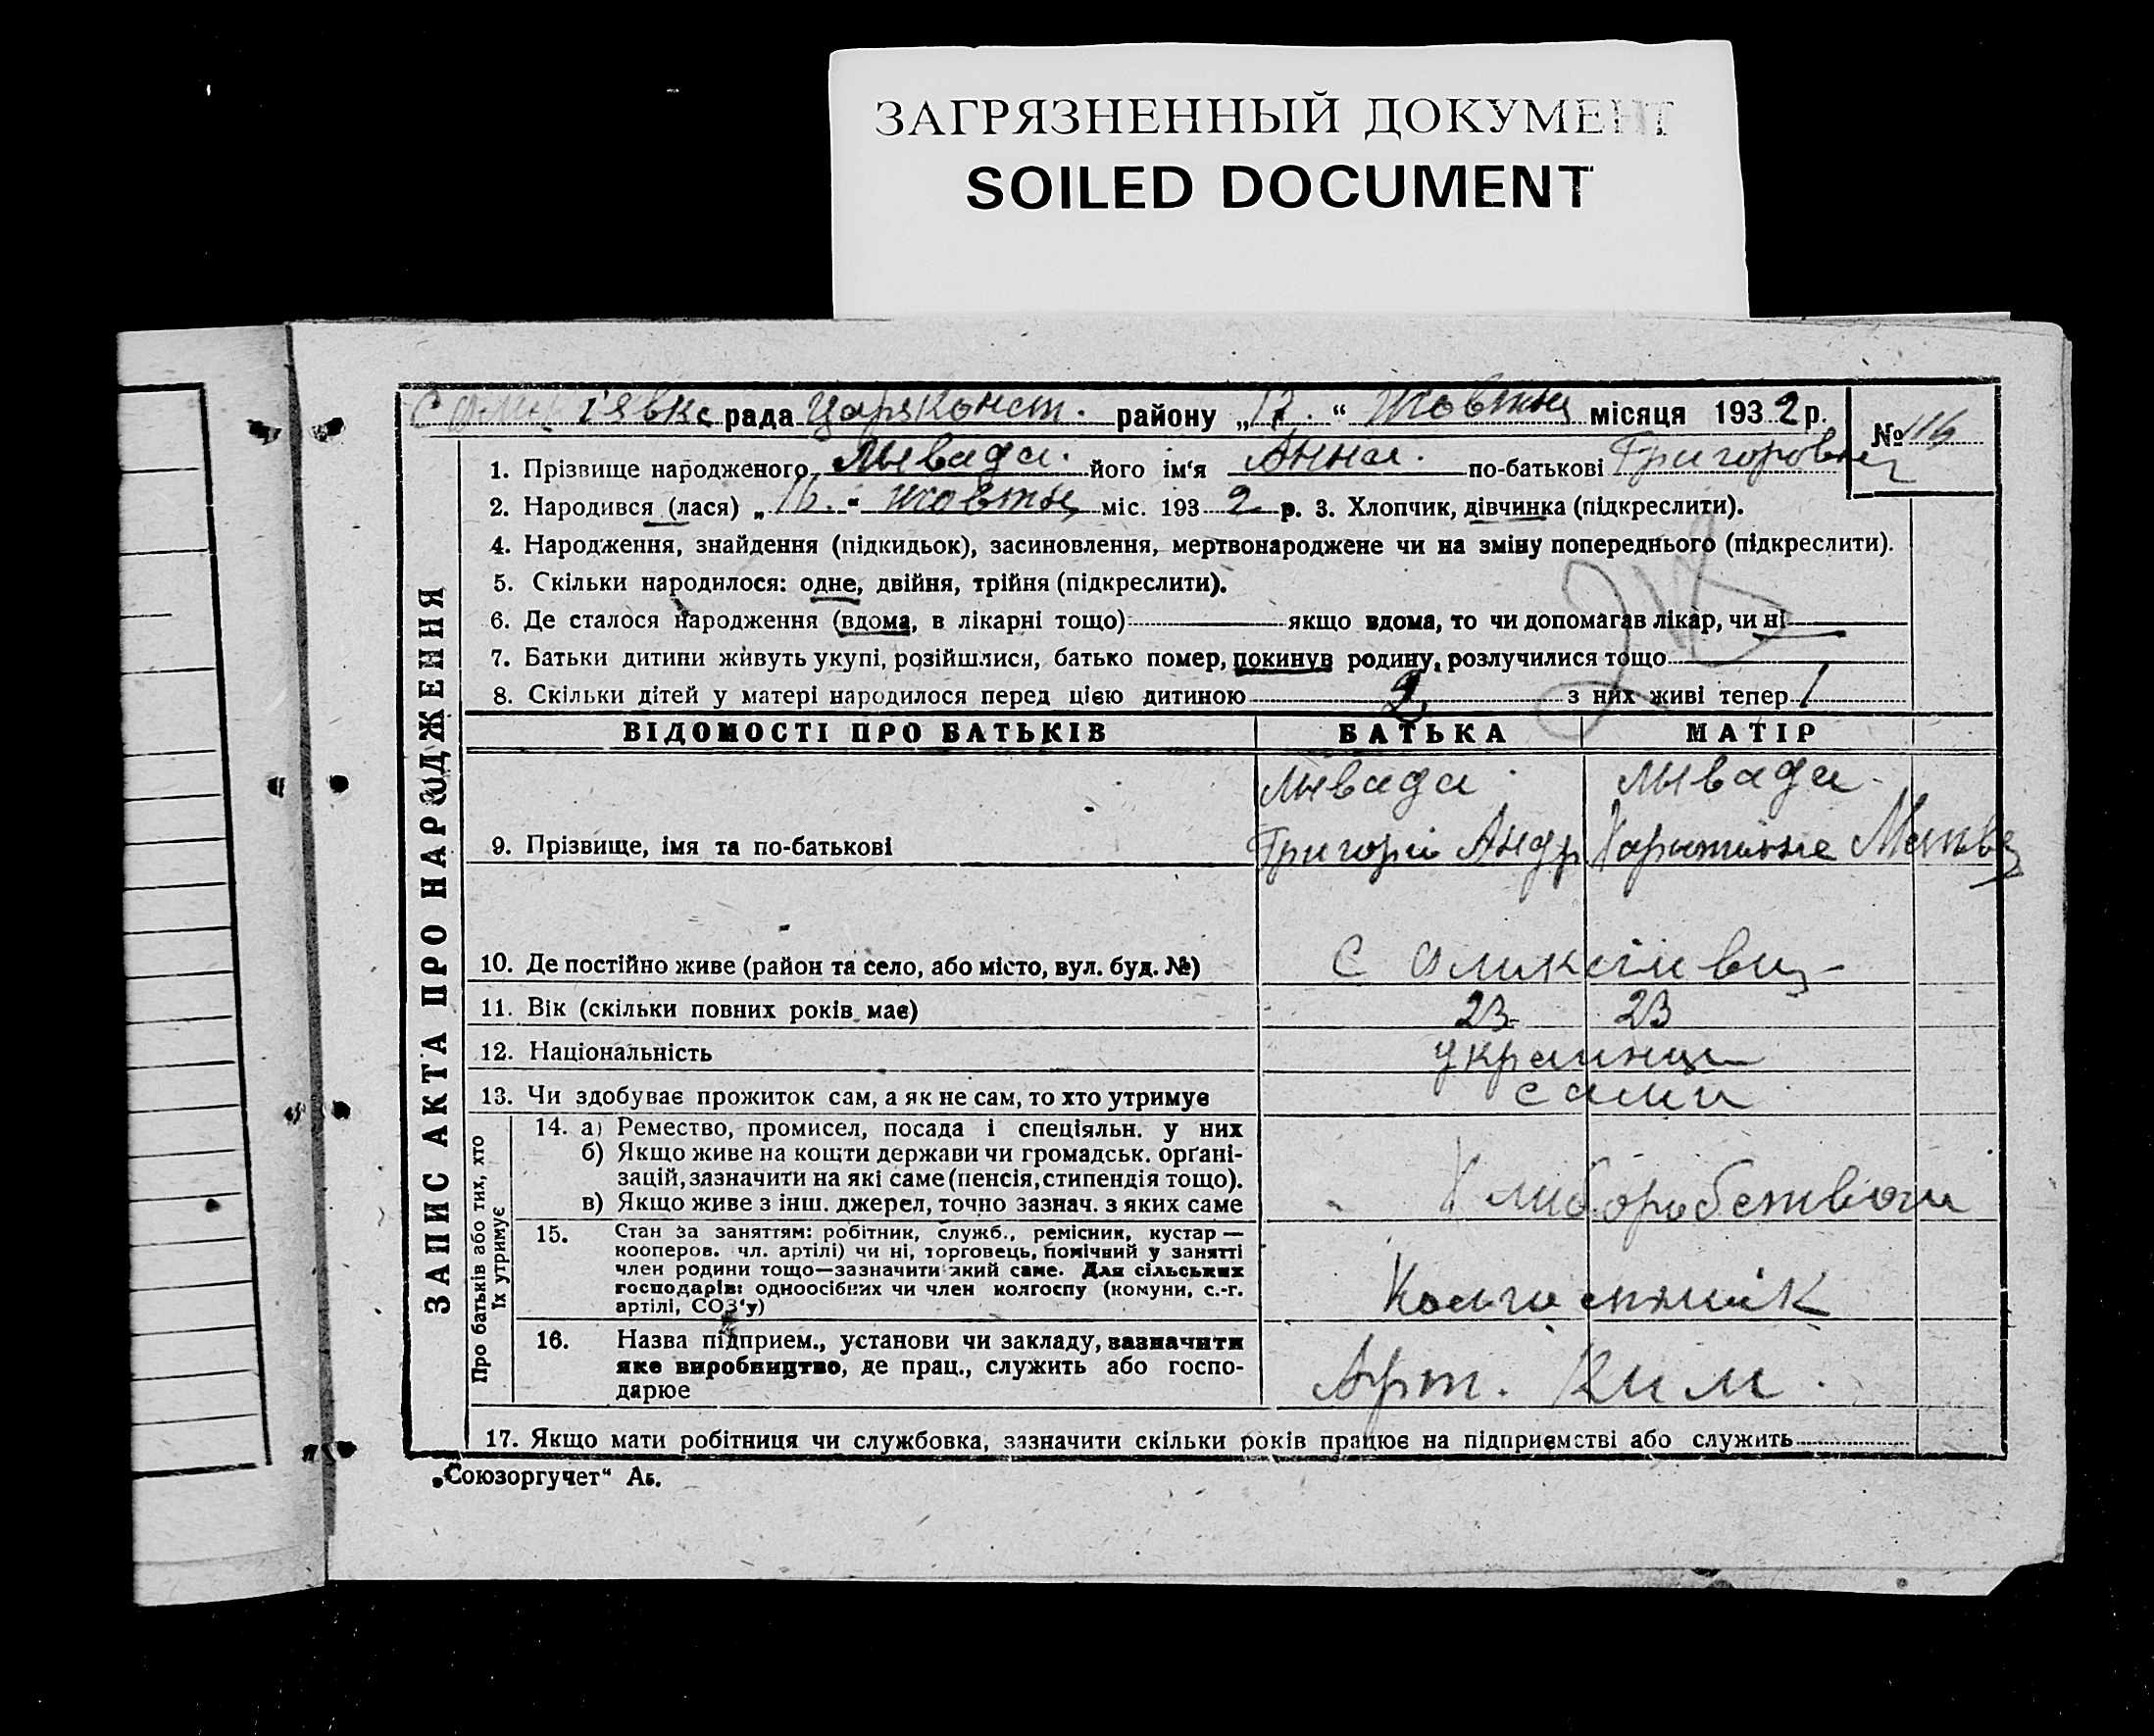 ЗАГРЯЗНЕННЫЙ ДОКУМЕНТ
SOILED DOCUMENT
рада Царяконст. району „17.“ Жовтня місяця 1932 р.
№ 116
1. Прізвище народженого Лывада. його ім'я Анна. по-батькові Григоровна
2. Народився (лася) „16.“ жовтня міс. 1932 р. 3. Хлопчик, дівчинка (підкреслити).
4. Народження, знайдення (підкидьок), засиновлення, мертвонароджене чи на зміну попереднього (підкреслити).
5. Скільки народилося: одне, двійня, трійня (підкреслити).
6. Де сталося народження (вдома, в лікарні тощо) якщо вдома, то чи допомагав лікар, чи ні
7. Батьки дитини живуть укупі, розійшлися, батько помер, покинув родину, розлучилися тощо
8. Скільки дітей у матері народилося перед цією дитиною 2 з них живі тепер 1
ЗАПИС АКТА ПРО НАРОДЖЕННЯ
ВІДОМОСТІ ПРО БАТЬКІВ БАТЬКА МАТІР
Лывада Лывада
9. Прізвище, імя та по-батькові Григорій Андр
10. Де постійно живе (район та село, або місто, вул. буд. №) С
11. Вік (скільки повних років має) 23 23
12. Національність украинци
13. Чи здобуває прожиток сам, а як не сам, то хто утримує сами
Про батьків або тих, хто
їх утримує
14. а) Ремество, промисел, посада і спеціяльн. у них
б) Якщо живе на кошти держави чи громадськ. орґані-
зацій, зазначити на які саме (пенсія, стипендія тощо).
в) Якщо живе з інш. джерел, точно зазнач. з яких саме
15. Стан за заняттям: робітник, служб., ремісник, кустар —
кооперов. чл. артілі) чи ні, торговець, помічний у занятті
член родини тощо—зазначити який саме. Для сільських
господарів: одноосібних чи член колгоспу (комуни, с.-г.
артілі, СОЗ'у)
16. Назва підприєм., установи чи закладу, зазначити
яке виробництво, де прац., служить або госпо-
дарює
Арт. Ким.
17. Якщо мати робітниця чи службовка, зазначити скільки років працює на підприємстві або служить
„Союзоргучет“ Аб.